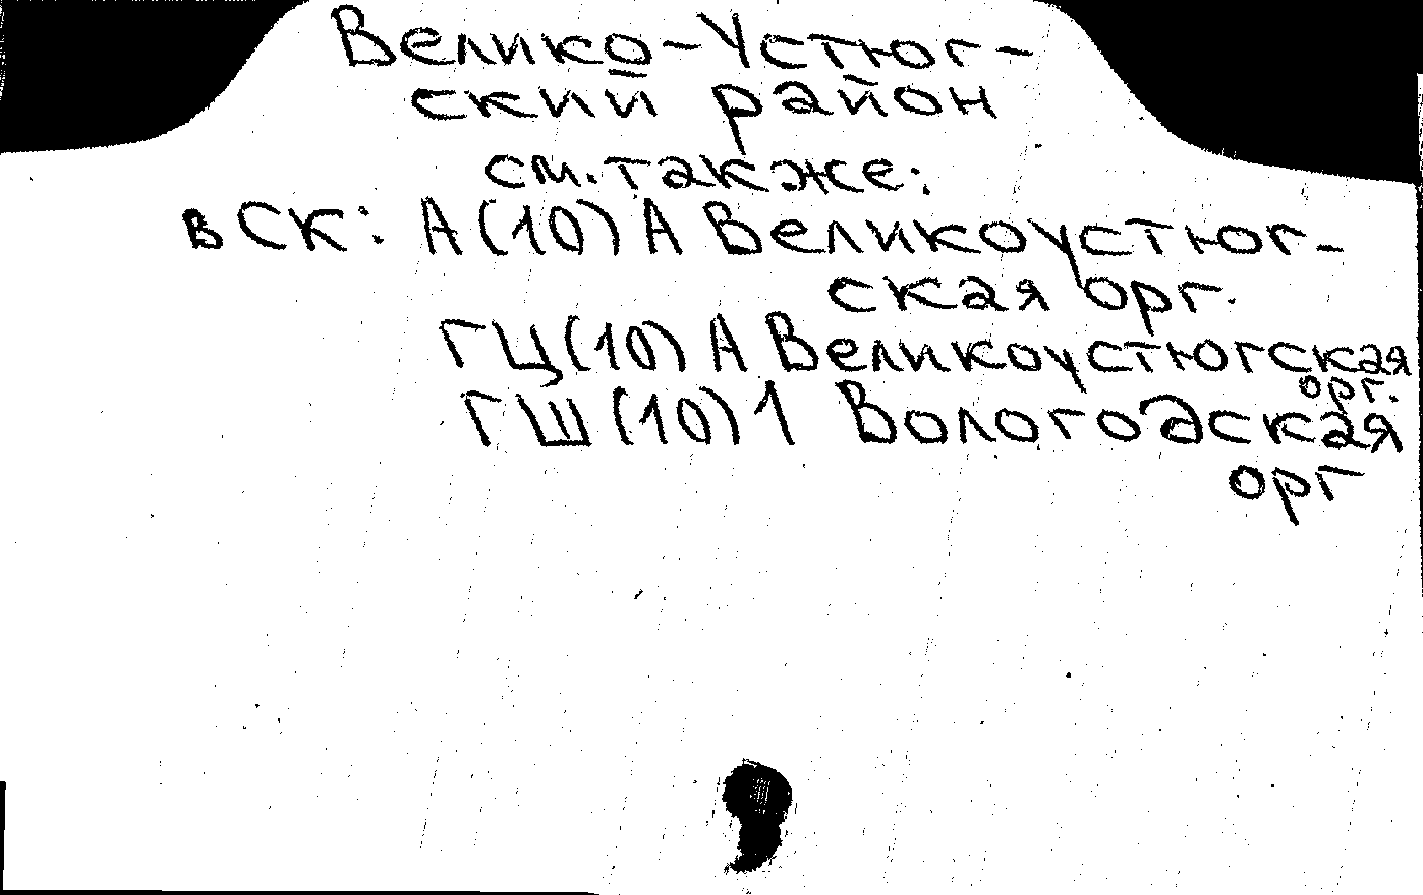 Велико-Устюг-
ский район
см. также:
в СК: А(10) А Великоустюг-
ская орг.
ГЦ(10) А Великоустюгская
орг.
ГШ(10) 1 Вологодская
орг